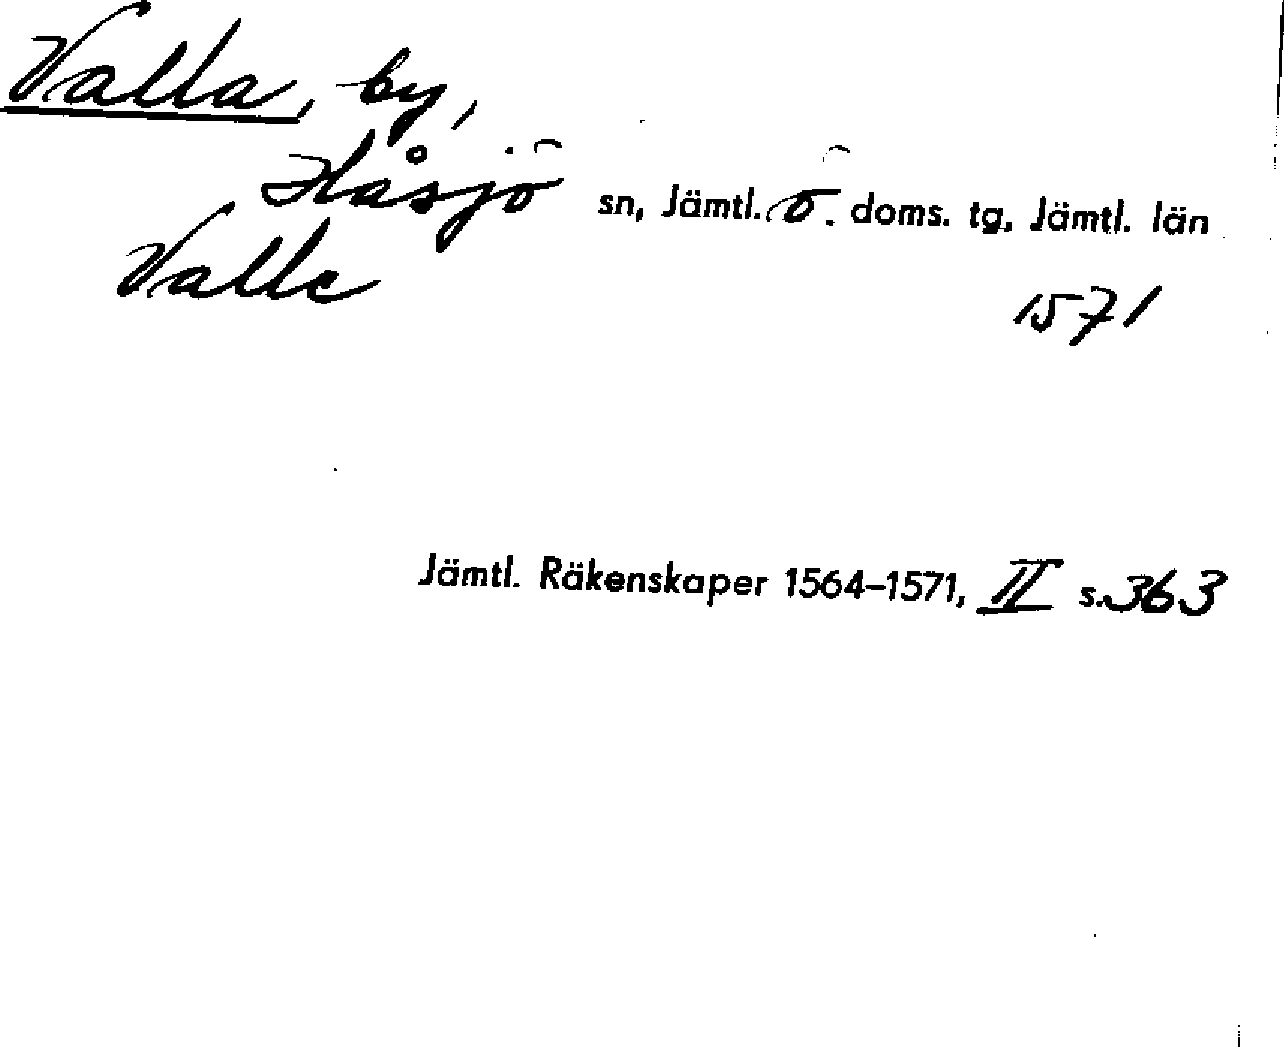 Valla, by,
Håsjö sn, Jämtl. ö. doms. tg, Jämtl. län
Valle 1571
Jämtl. Räkenskaper 1564–1571, II s. 363